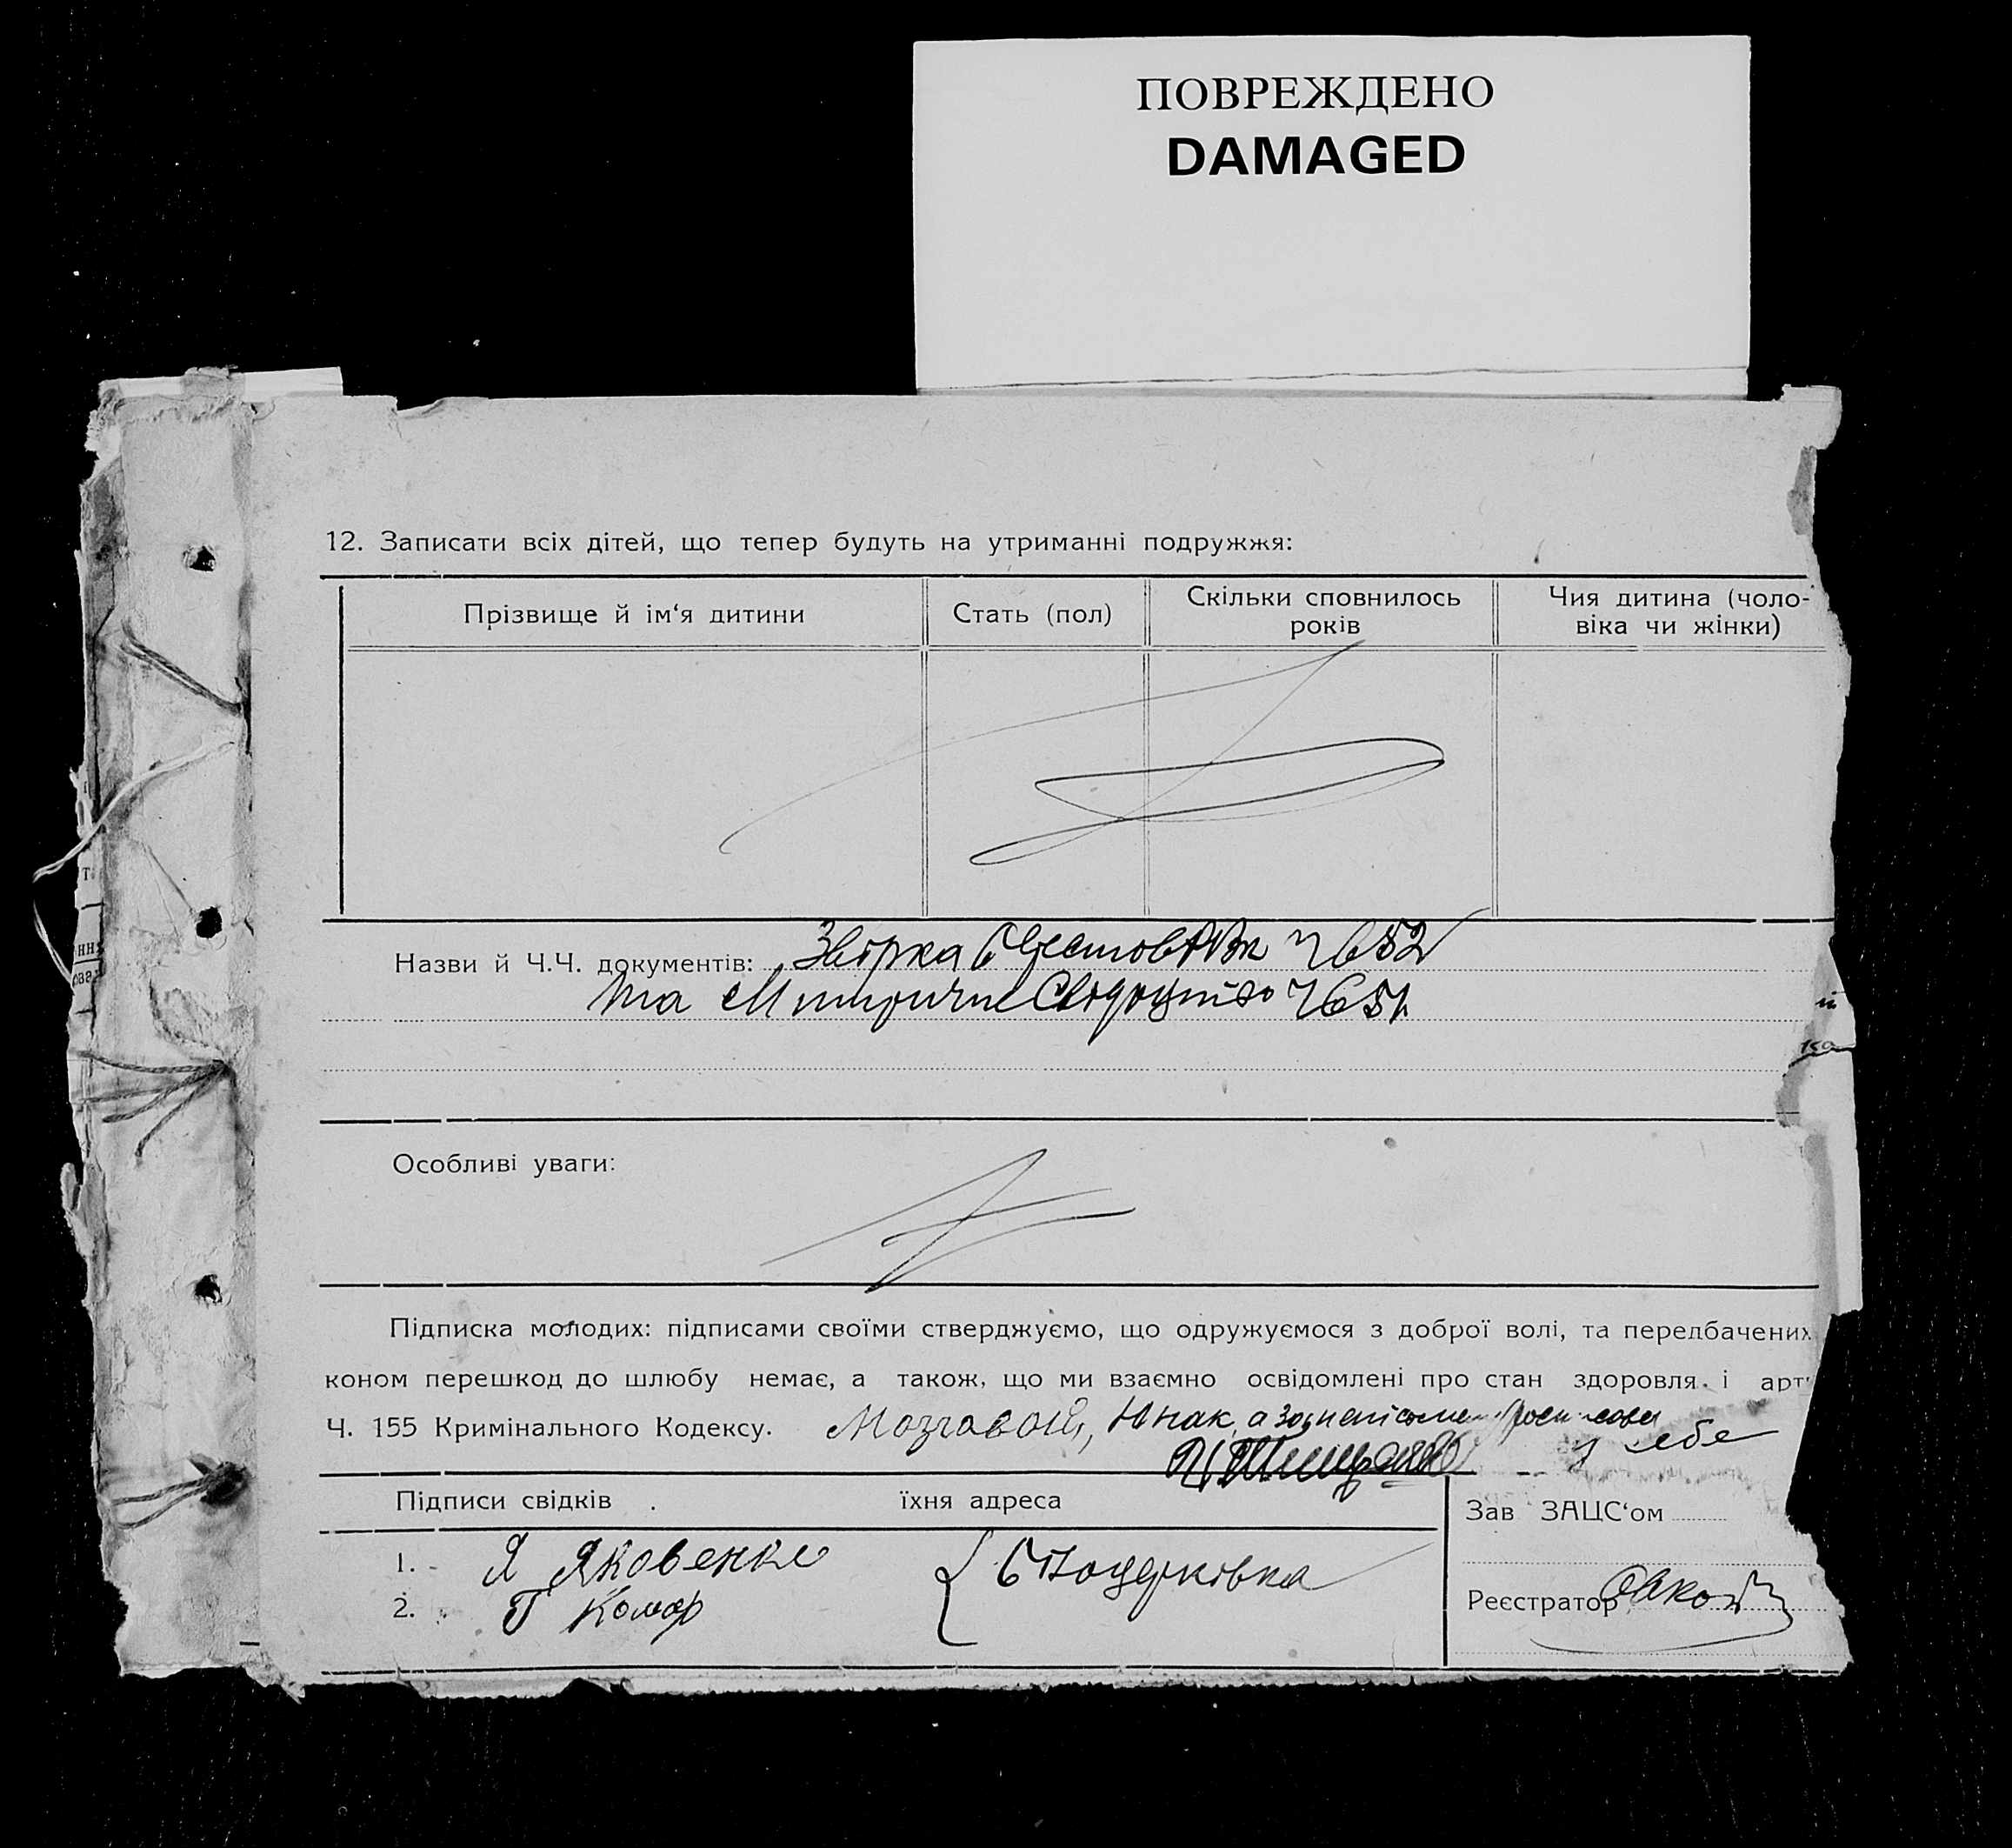 ПОВРЕЖДЕНО
DAMAGED
12. Записати всіх дітей, що тепер будуть на утриманні подружжя:
Прізвище й ім‘я дитини
Стать (пол)
Скільки сповнилось
років
Чия дитина (чоло-
віка чи жінки)
Назви й Ч.Ч. документів:
та
Особливі уваги:
Підписка молодих: підписами своїми стверджуємо, що одружуємося з доброї волі, та передбачених
коном перешкод до шлюбу немає, а також, що ми взаємно освідомлені про стан здоровля і арт
Ч. 155 Кримінального Кодексу. Мозговой, Юнак, а за
Підписи свідків їхня адреса
Зав ЗАЦС‘ом
1. Я Яковенко
2. Г Комар
Реєстратор